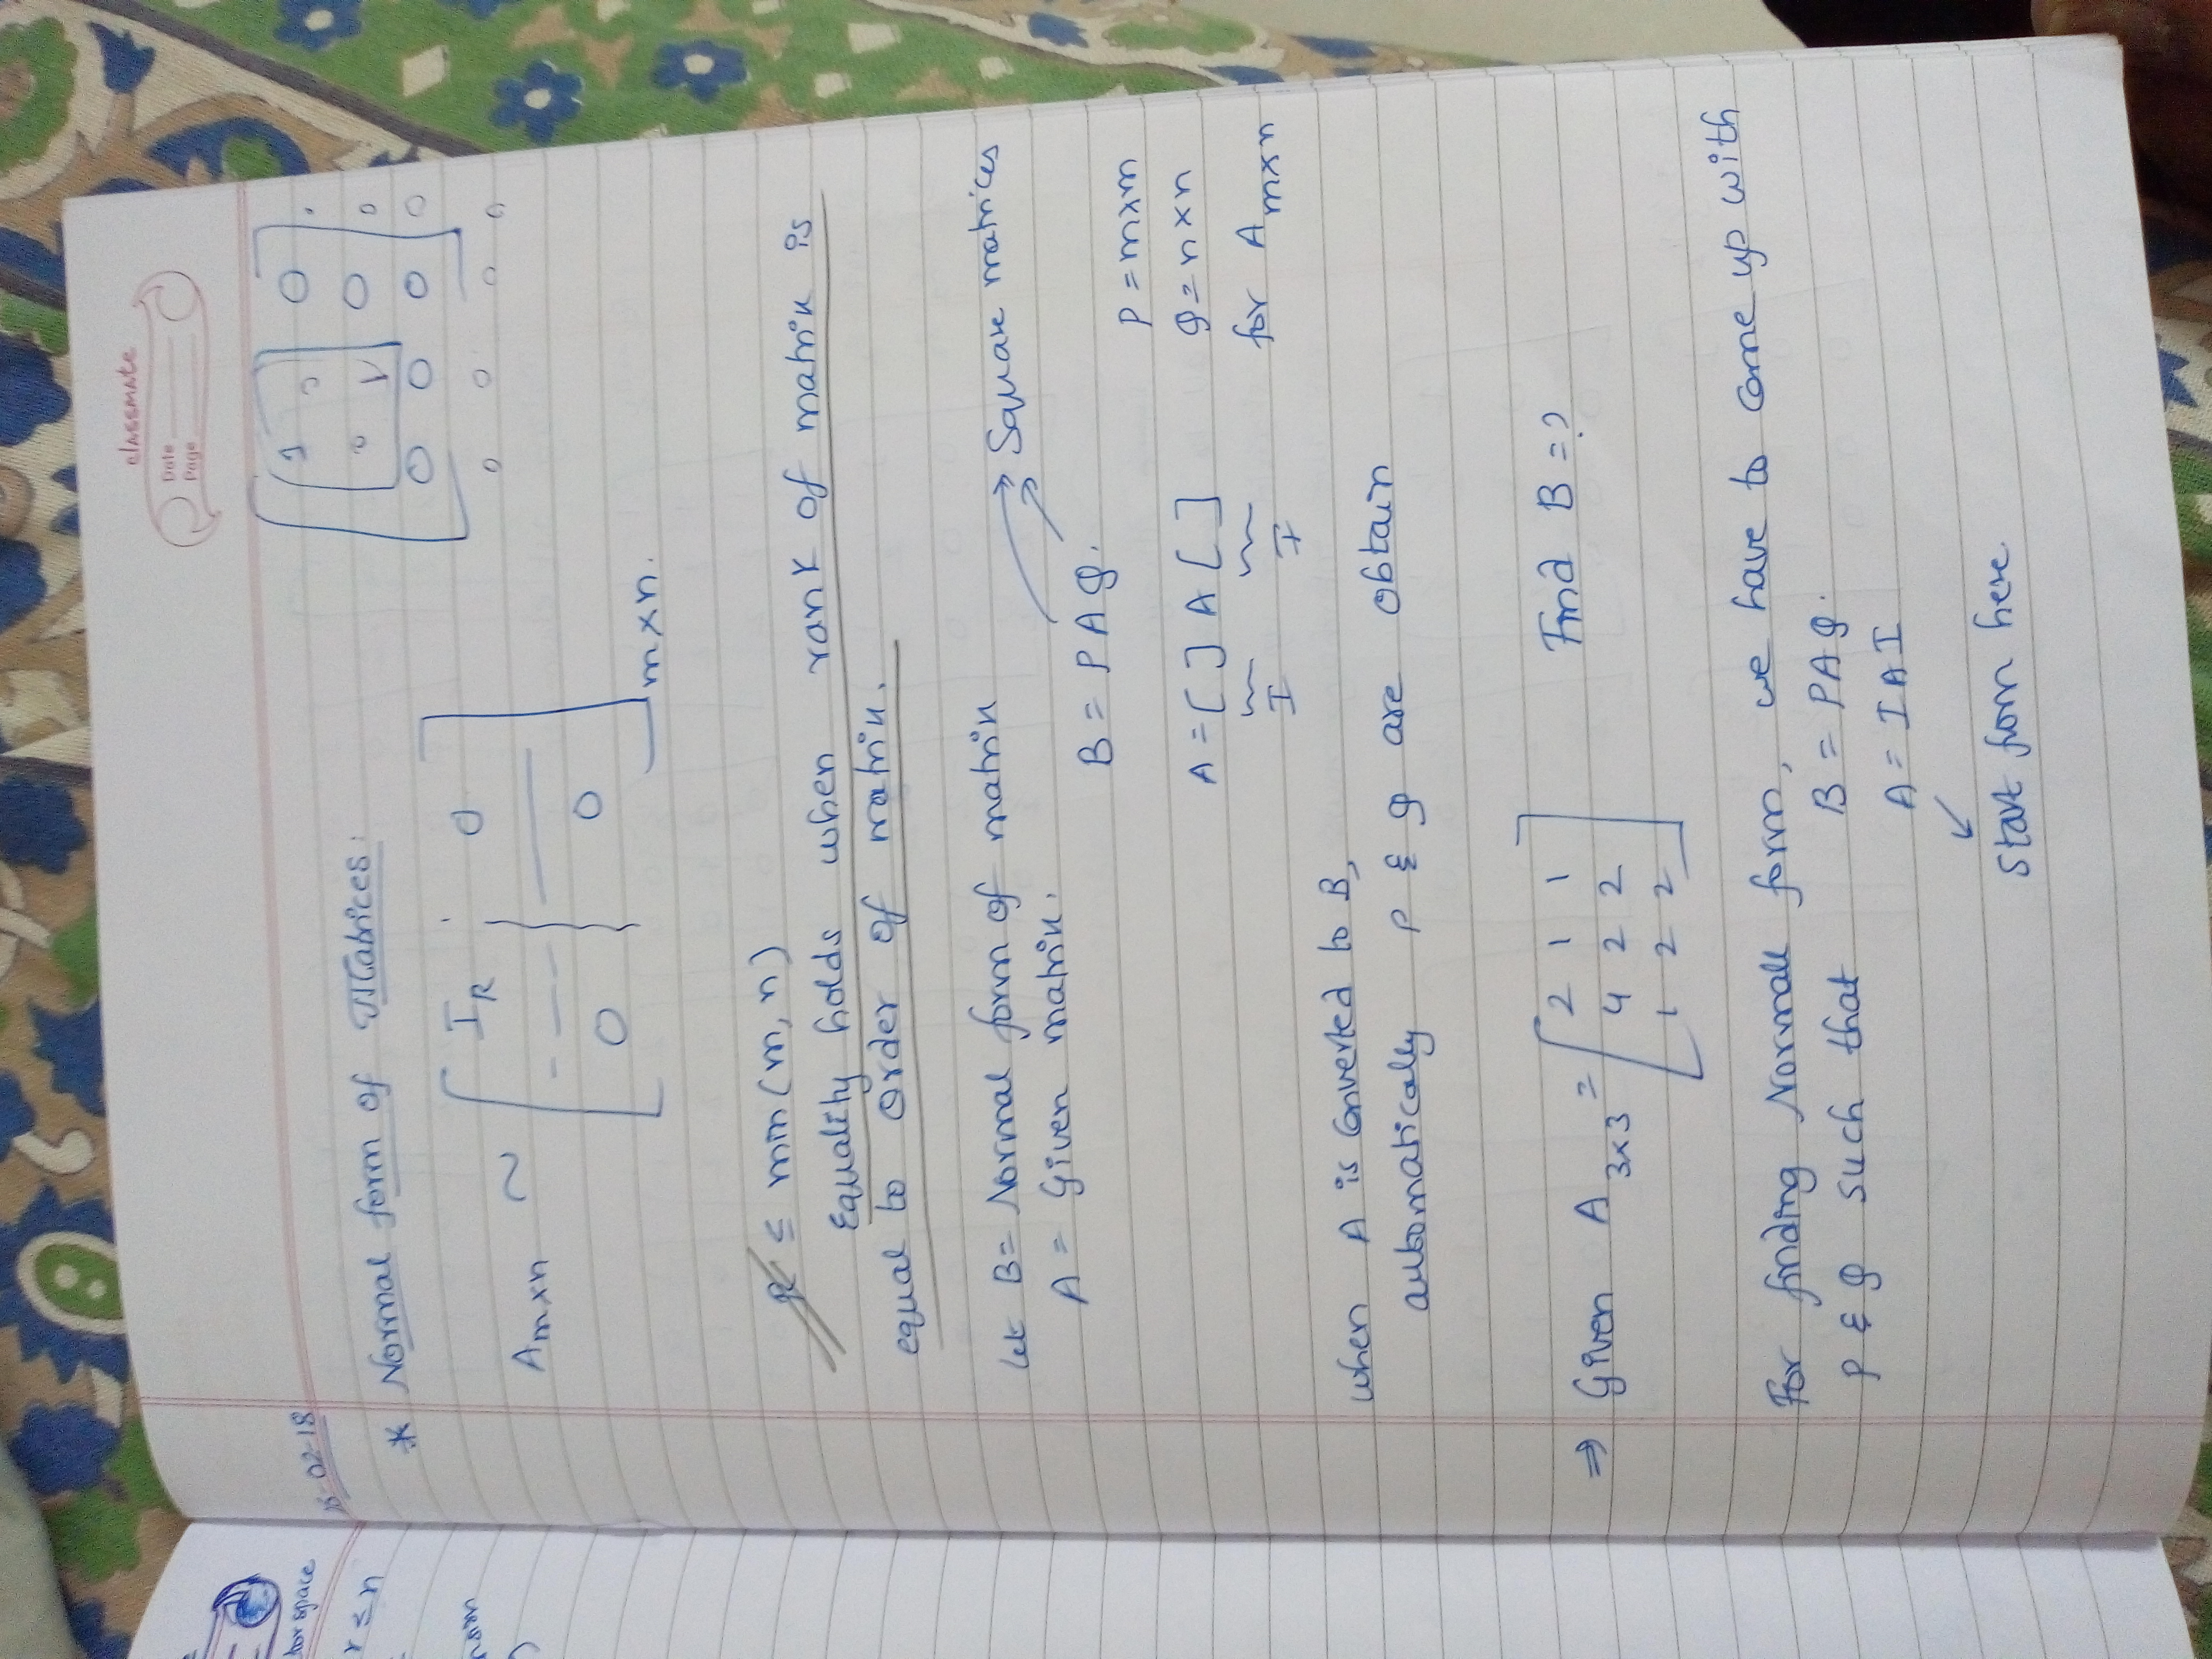 classmate
Date
Page
15-02-18
* Normal form of Matrices:
Amxn ~ [ IR 0
0 0 ] mxn.
[ 1 0 0
0 1 0 0
0 0 0 0 ]
0 0 0 0
r ≤ min (m, n)
Equality holds when rank of matrix is
equal to order of matrix.
Let B = Normal form of matrix
A = Given matrix.
Square matrices
B = P A Q.
P = mxm
A = [ ] A [ ]
I I
Q = nxn
for A mxn
when A is Converted to B,
automatically P & Q are obtain
⇒ Given A 3x3 = [ 2 1 1
4 2 2
1 2 2 ]
Find B = ?
For finding Normal form, we have to come up with
P & Q such that B = PAQ.
A = I A I
↙
Start from here.
tor space
r ≤ n